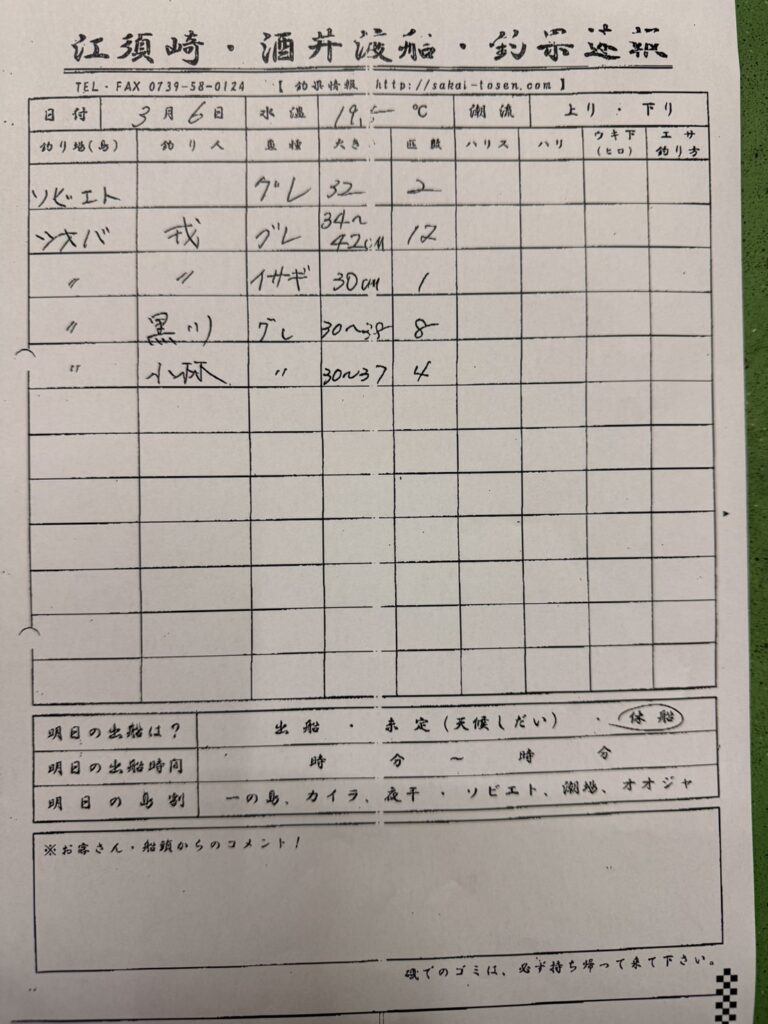 江須崎・酒井渡船・釣果速報
TEL・FAX 0739-58-0124 【 釣果情報 http://sakai-tosen.com 】
日付 3月6日 水温 19.5 ℃ 潮流 上り・下り
釣り場(島) 釣り人 魚種 大きさ 匹数 ハリス ハリ ウキ下(ヒロ) エサ釣り方
ソビエト グレ 32 2
ツキバ 戎 グレ 34〜42cm 12
〃 〃 イサギ 30cm 1
〃 黒川 グレ 30〜38 8
〃 小林 〃 30〜37 4
明日の出船は? 出船・未定(天候しだい)・休船
明日の出船時間 時 分 〜 時 分
明日の島割 一の島、カイラ、夜干・ソビエト、潮場、オオジャ
※お客さん・船頭からのコメント!
磯でのゴミは、必ず持ち帰って来て下さい。